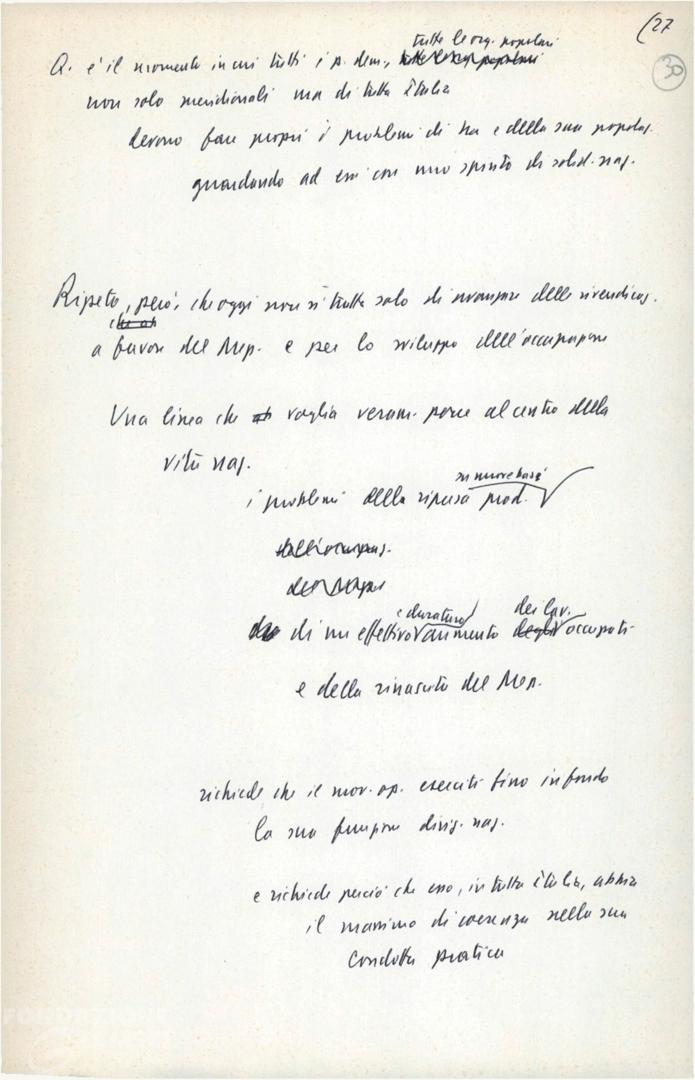 (27
30
tutte le org. popolari
Q. è il momento in cui tutti i p. dem.,
non solo meridionali ma di tutta Italia
devono fare propri i problemi di  e della sua popolaz.
guardando ad essi con uno spirito di solid. naz.
Ripeto, però, che oggi non si tratta solo di avanzare delle rivendicaz.
a favore del Mezz. e per lo sviluppo dell'occupazione
Una linea che voglia veram. porre al centro della
vita naz.
su nuove basi
i problemi della ripresa prod.
dell'occupaz.
del Mezz.
e duraturo dei lav.
di un effettivo aumento degli occupati
e della rinascita del Mezz.
richiede che il mov. op. eserciti fino in fondo
la sua funzione dirig. naz.
e richiede perciò che esso, in tutta Italia, abbia
il massimo di coerenza nella sua
condotta pratica